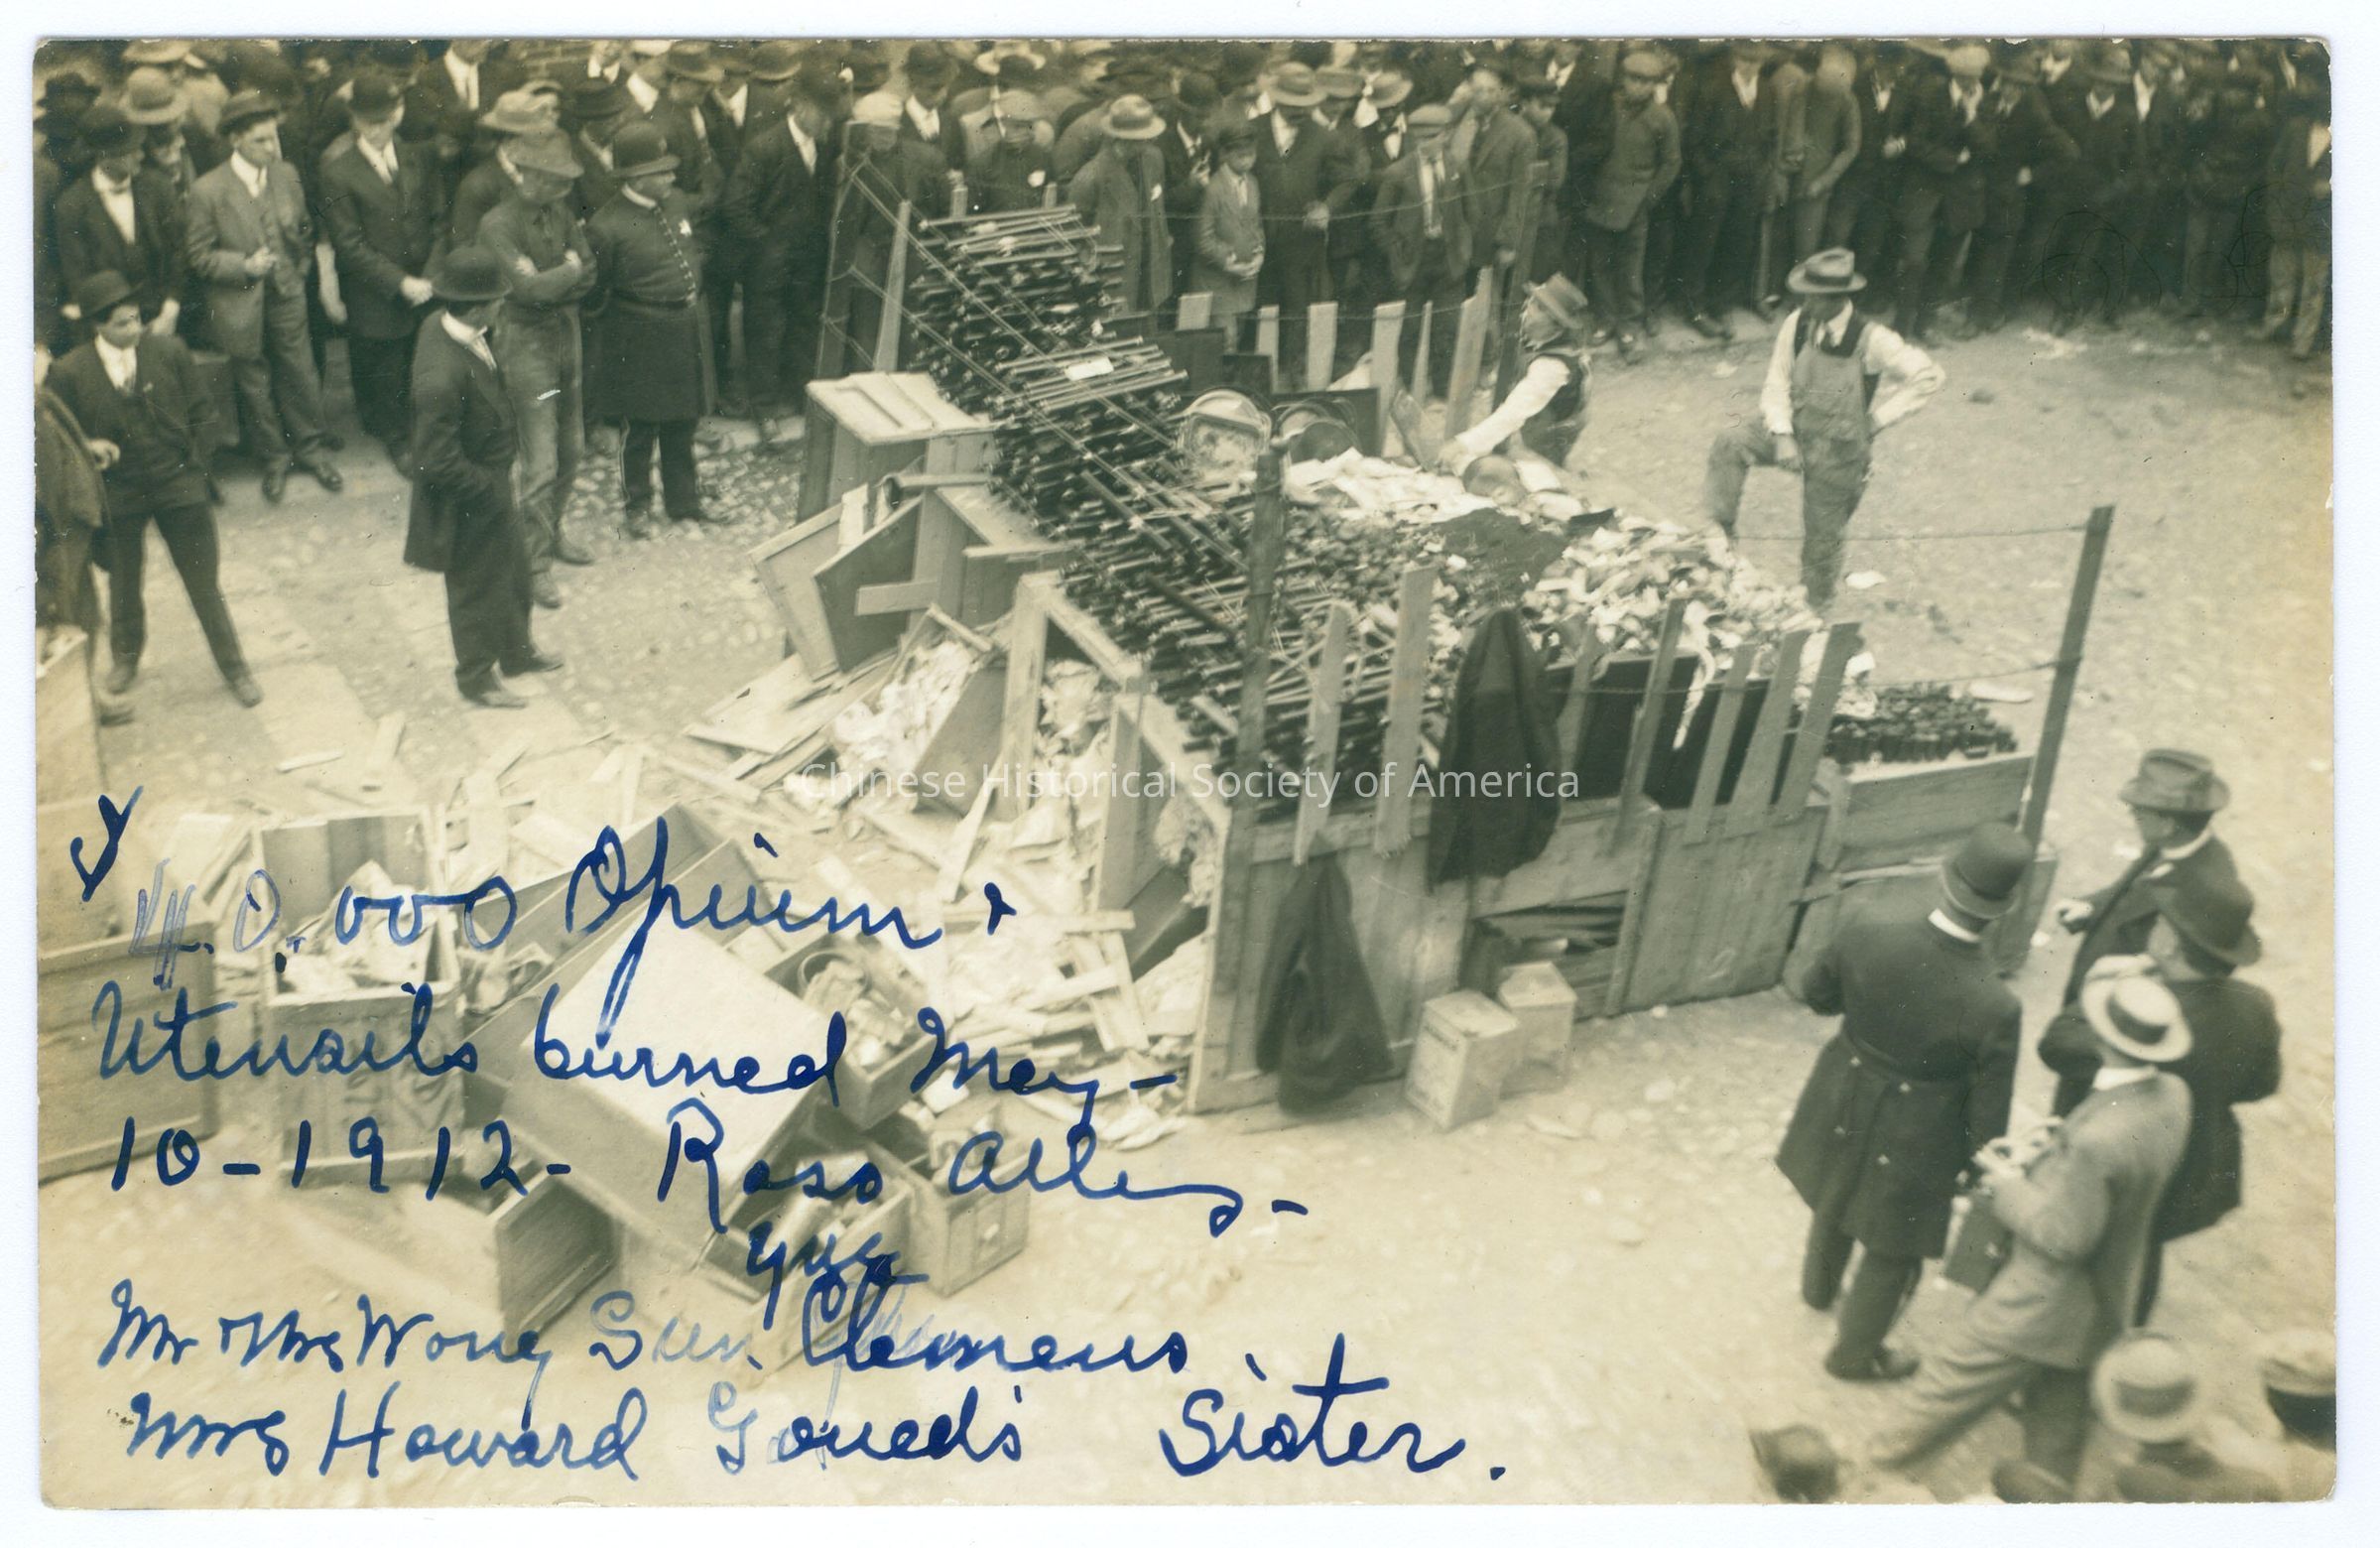 Chinese Historical Society of America
40,000 Opium &
Utensils burned May-
10-1912- Ross Alley-
Mr & Mrs Wong Sun Yue Clemens.
Mrs Howard Gould's Sister.